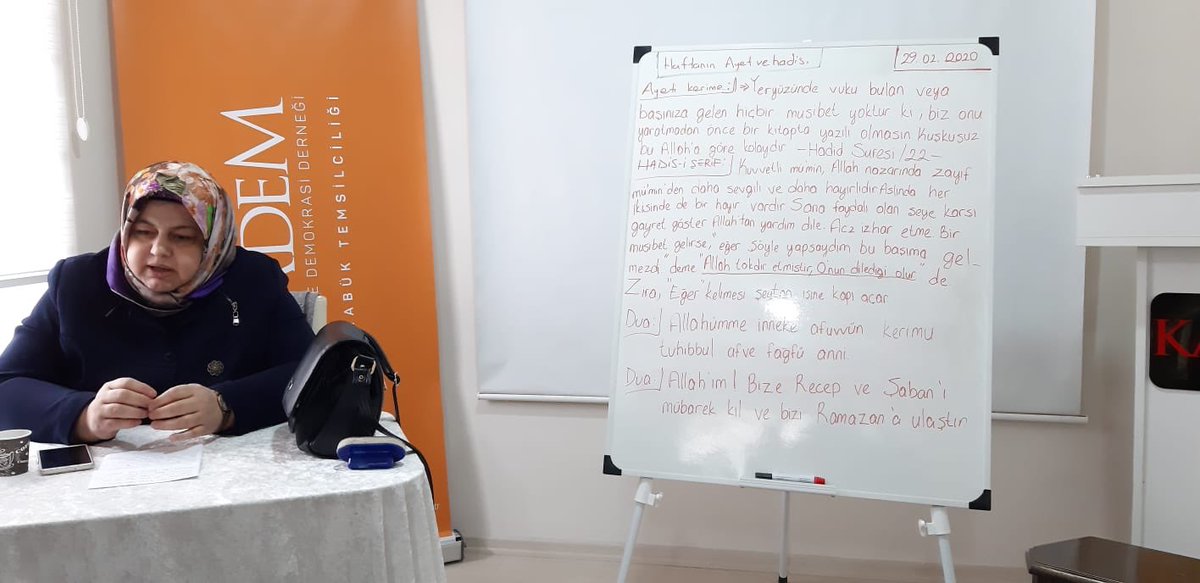 ADEM
E DEMOKRASİ DERNEĞİ
ABÜK TEMSİLCİLİĞİ
Haftanın Ayet ve hadis.
29.02.2020
Ayeti kerime: 1 → Yeryüzünde vuku bulan veya
başınıza gelen hiçbir musibet yoktur ki, biz onu
yaratmadan önce bir kitapta yazılı olmasın Kuşkusuz
bu Allah'a göre kolaydır - Hadid Suresi / 22 -
HADİS-İ ŞERİF: Kuvvetli mümin, Allah nazarında zayıf
mü'min'den daha sevgili ve daha hayırlıdır Aslında her
ikisinde de bir hayır vardır Sana faydalı olan şeye karşı
gayret göster Allah'tan yardım dile. Acz izhar etme. Bir
musibet gelirse, "eğer şöyle yapsaydım bu başıma gel-
mezdi" deme "Allah takdir etmiştir, Onun dilediği olur" de
Zira, "Eğer" kelmesi şeytan işine kapı açar
Dua: Allahümme inneke afuvvün kerimu
tuhibbul afve fağfü anni.
Dua: Allah'ım! Bize Recep ve Şaban'ı
mübarek kıl ve bizi Ramazan'a ulaştır
KA